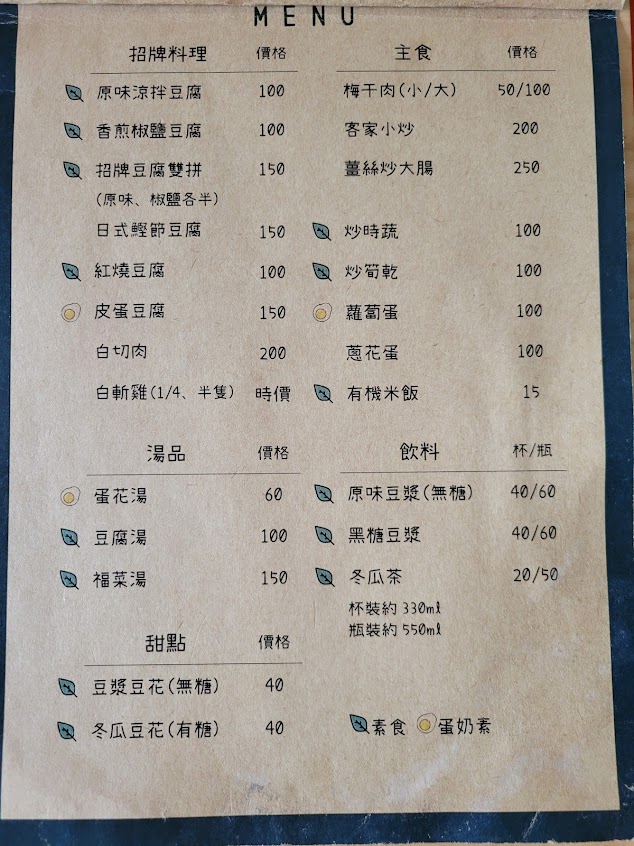 MENU
招牌料理 價格
原味涼拌豆腐 100
香煎椒鹽豆腐 100
招牌豆腐雙拼 150
(原味、椒鹽各半)
日式鰹節豆腐 150
紅燒豆腐 100
皮蛋豆腐 150
白切肉 200
白斬雞(1/4、半隻) 時價
湯品 價格
蛋花湯 60
豆腐湯 100
福菜湯 150
甜點 價格
豆漿豆花(無糖) 40
冬瓜豆花(有糖) 40
主食 價格
梅干肉(小/大) 50/100
客家小炒 200
薑絲炒大腸 250
炒時蔬 100
炒筍乾 100
蘿蔔蛋 100
蔥花蛋 100
有機米飯 15
飲料 杯/瓶
原味豆漿(無糖) 40/60
黑糖豆漿 40/60
冬瓜茶 20/50
杯裝約 330ml
瓶裝約 550ml
素食 蛋奶素